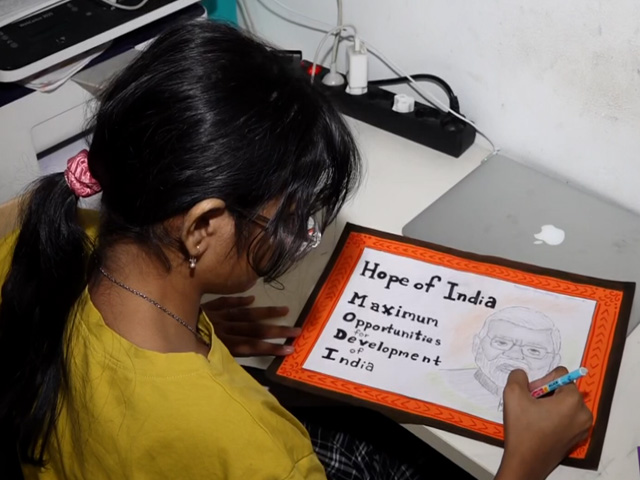 Hope of India
Maximum
Opportunities
for
Development
of
India